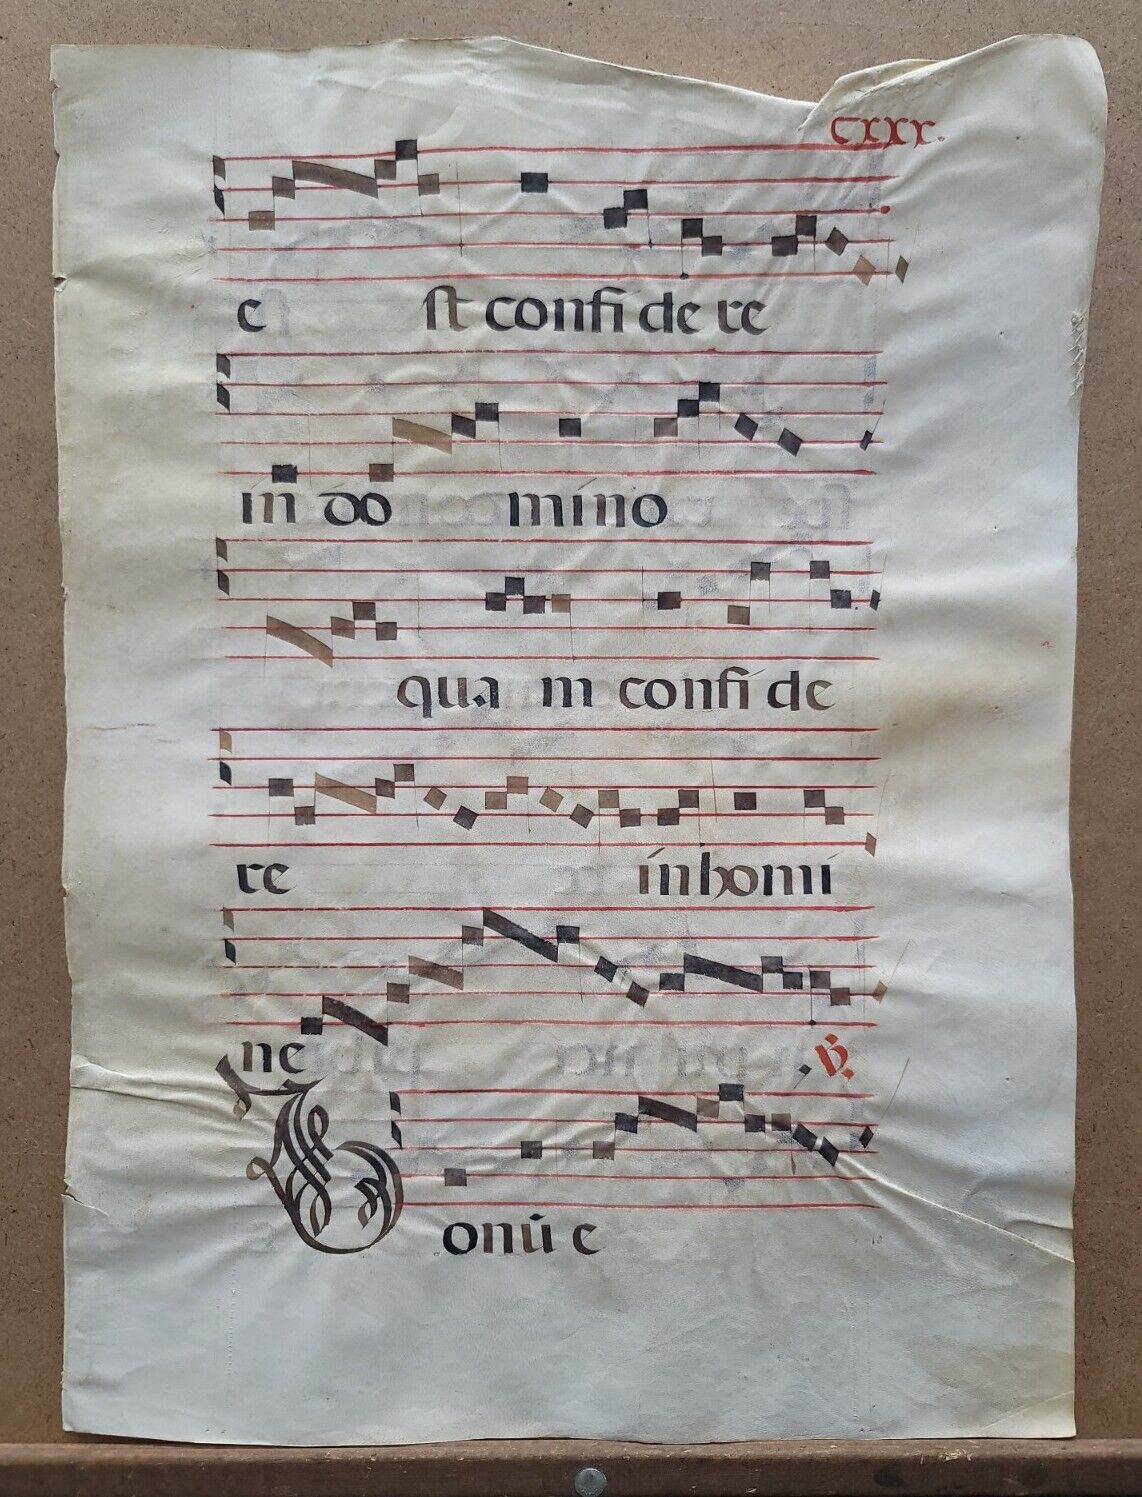 CXXX.
est confidere
in domino
quam confide
re in homi
ne ℣.
Conūe